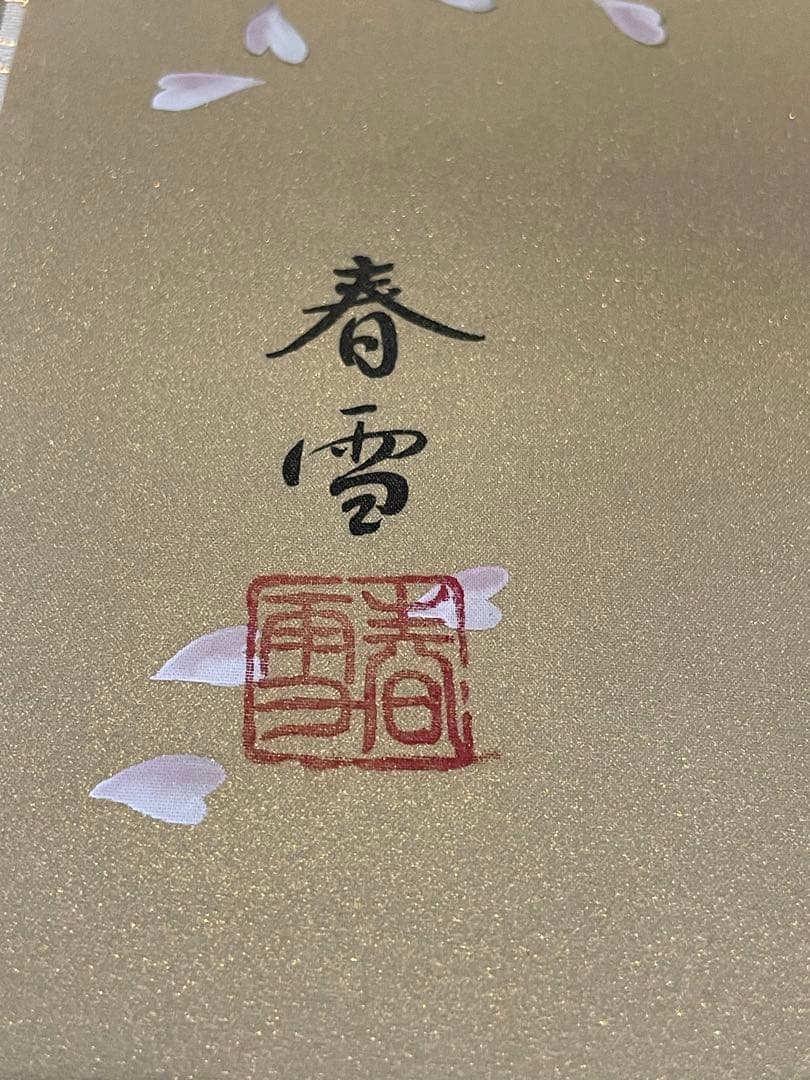 春雪
春雪